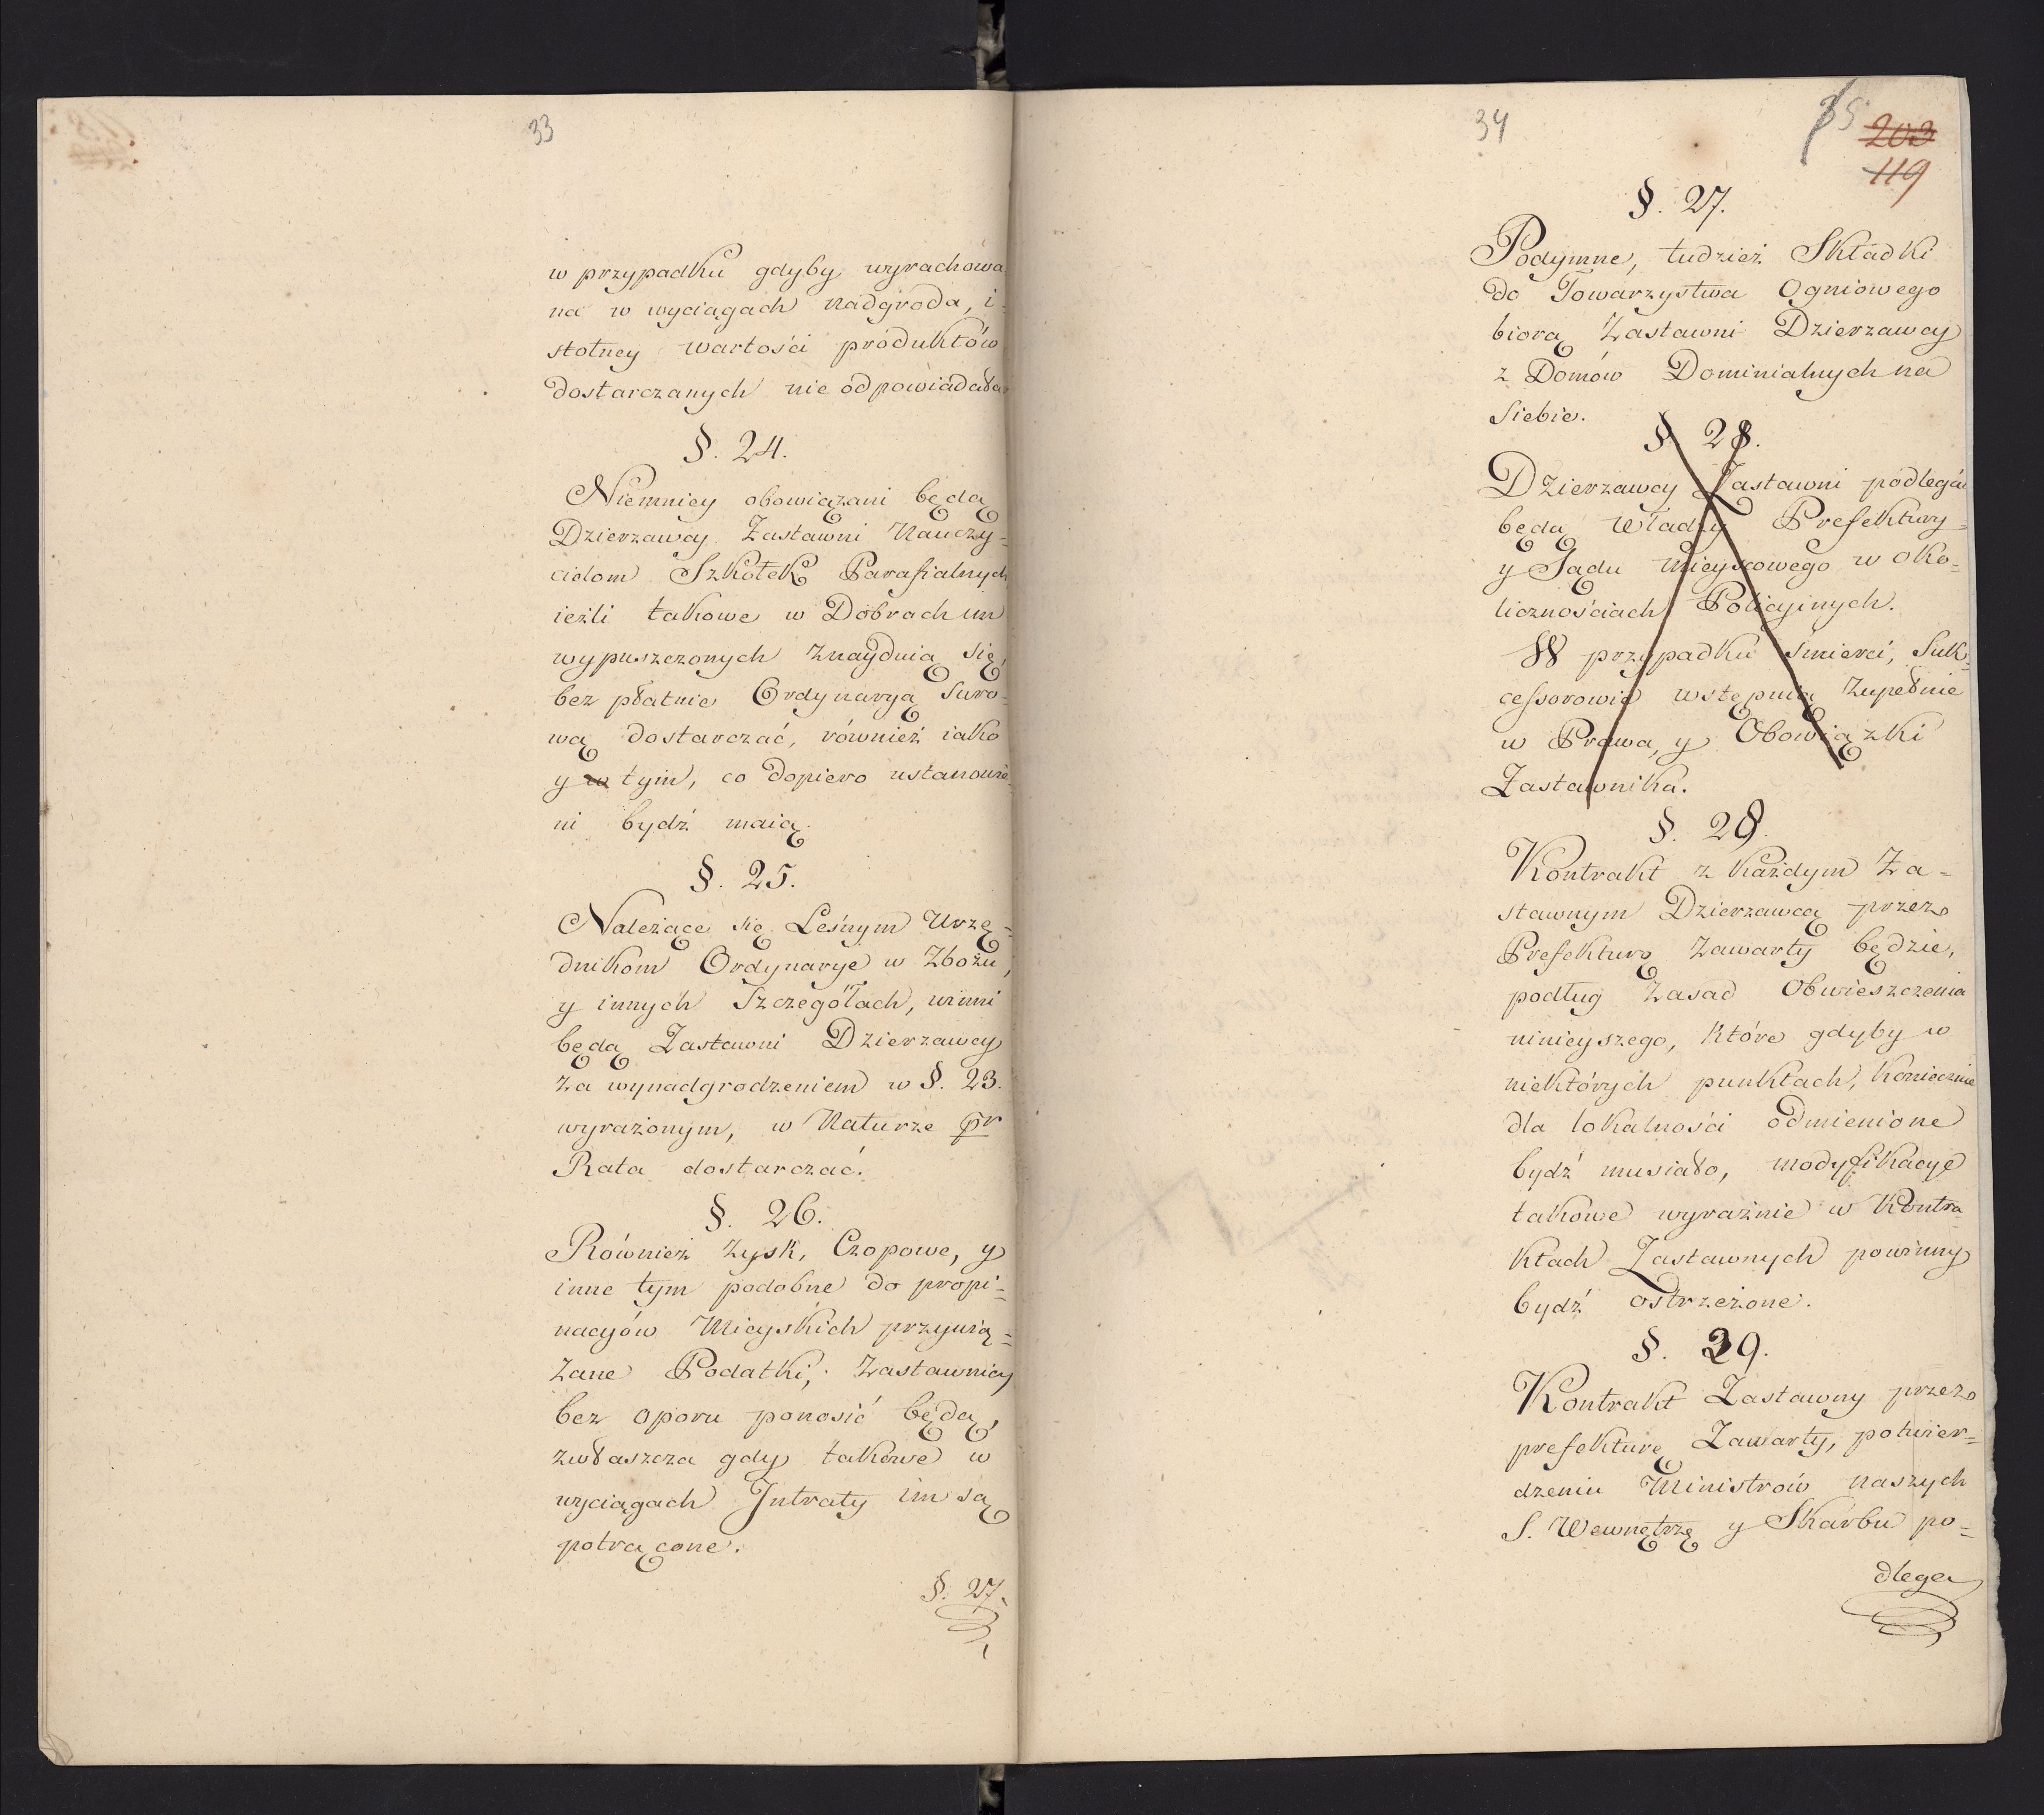 33
w przypadku gdyby wyrachowa
na w wyciągach nadgroda, i-
stotney wartości produktów
dostarczanych nie odpowiadała
§. 24.
Niemniey obowiązani będą
Dzierzawcy Zastawni Nauczy-
cielom Szkołek Parafialnych
ieżli takowe w Dobrach im
wypuszczonych znayduią się,
bez płatnie Ordynaryą suro-
wą dostarczać, również iako
y w tym, co dopiero ustanowie
ni bydź maią.
§. 25.
Należące się Leśnym Urzę-
dnikom Ordynarye w Zbożu,
y innych Szczegółach, winni
będą Zastawni Dzierzawcy
za wynadgrodzeniem w §. 23.
wyrażonym, w Naturze pr
Rata dostarczać.
§. 26.
Również Zysk, Czopowe, y
inne tym podobne do propi-
nacyów Mieyskich przywią-
zane Podatki, Zastawnicy
bez oporu ponosić będą,
zwłaszcza gdy takowe w
wyciągach Intraty im są
potrącone.
§. 27.
34
35
203
119
§. 27.
Podymne, tudzież Składki
do Towarzystwa Ogniowego
biorą Zastawni Dzierzawcy
z Domów Dominialnych na
siebie.
§ 28.
Dzierzawcy Zastawni podlegać
będą Władzy Prefektury
y Sądu mieyscowego w oko-
licznościach Policyinych.
W przypadku śmierci, Suk-
cessorowie wstępuią Zupełnie
w Prawa, y Obowiązki
Zastawnika.
§. 28.
Kontrakt z każdym Za-
stawnym Dzierzawcą przez
Prefekturę zawarty będzie,
podług Zasad Obwieszczenia
ninieyszego, które gdyby w
niektórych punktach, koniecznie
dla lokalności odmienione
bydź musiało, modyfikacye
takowe wyraźnie w Kontra
ktach Zastawnych powinny
bydź ostrzeżone.
§. 29.
Kontrakt Zastawny przez
prefekturę Zawarty, potwier-
dzeniu Ministrów naszych
S. Wewnętrzę y Skarbu po-
dlega